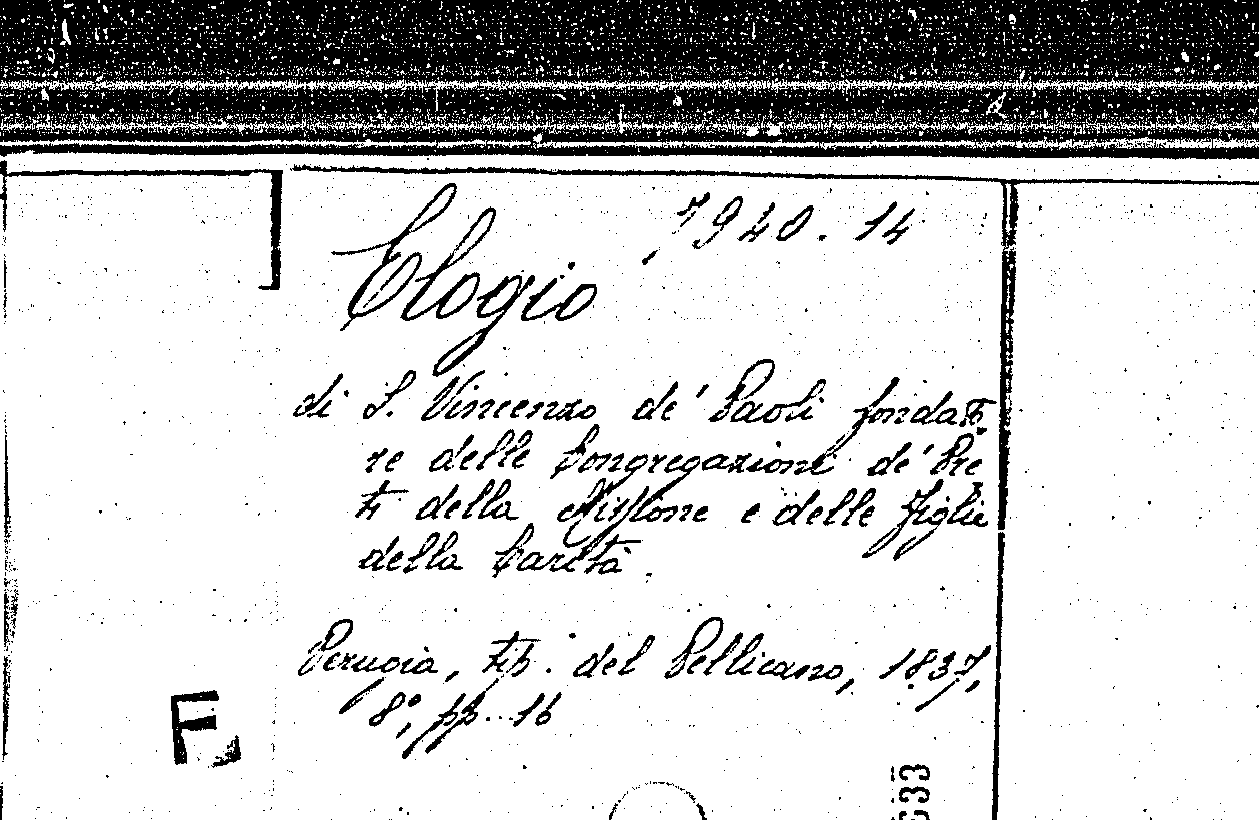 7940.14
Elogio
di S. Vincenzo de' Paoli fondato-
re delle Congregazioni de' Pre
ti della Missione e delle figlie
della Carità.
Perugia, tip. del Pellicano, 1837,
8°, pp. 16
F
633